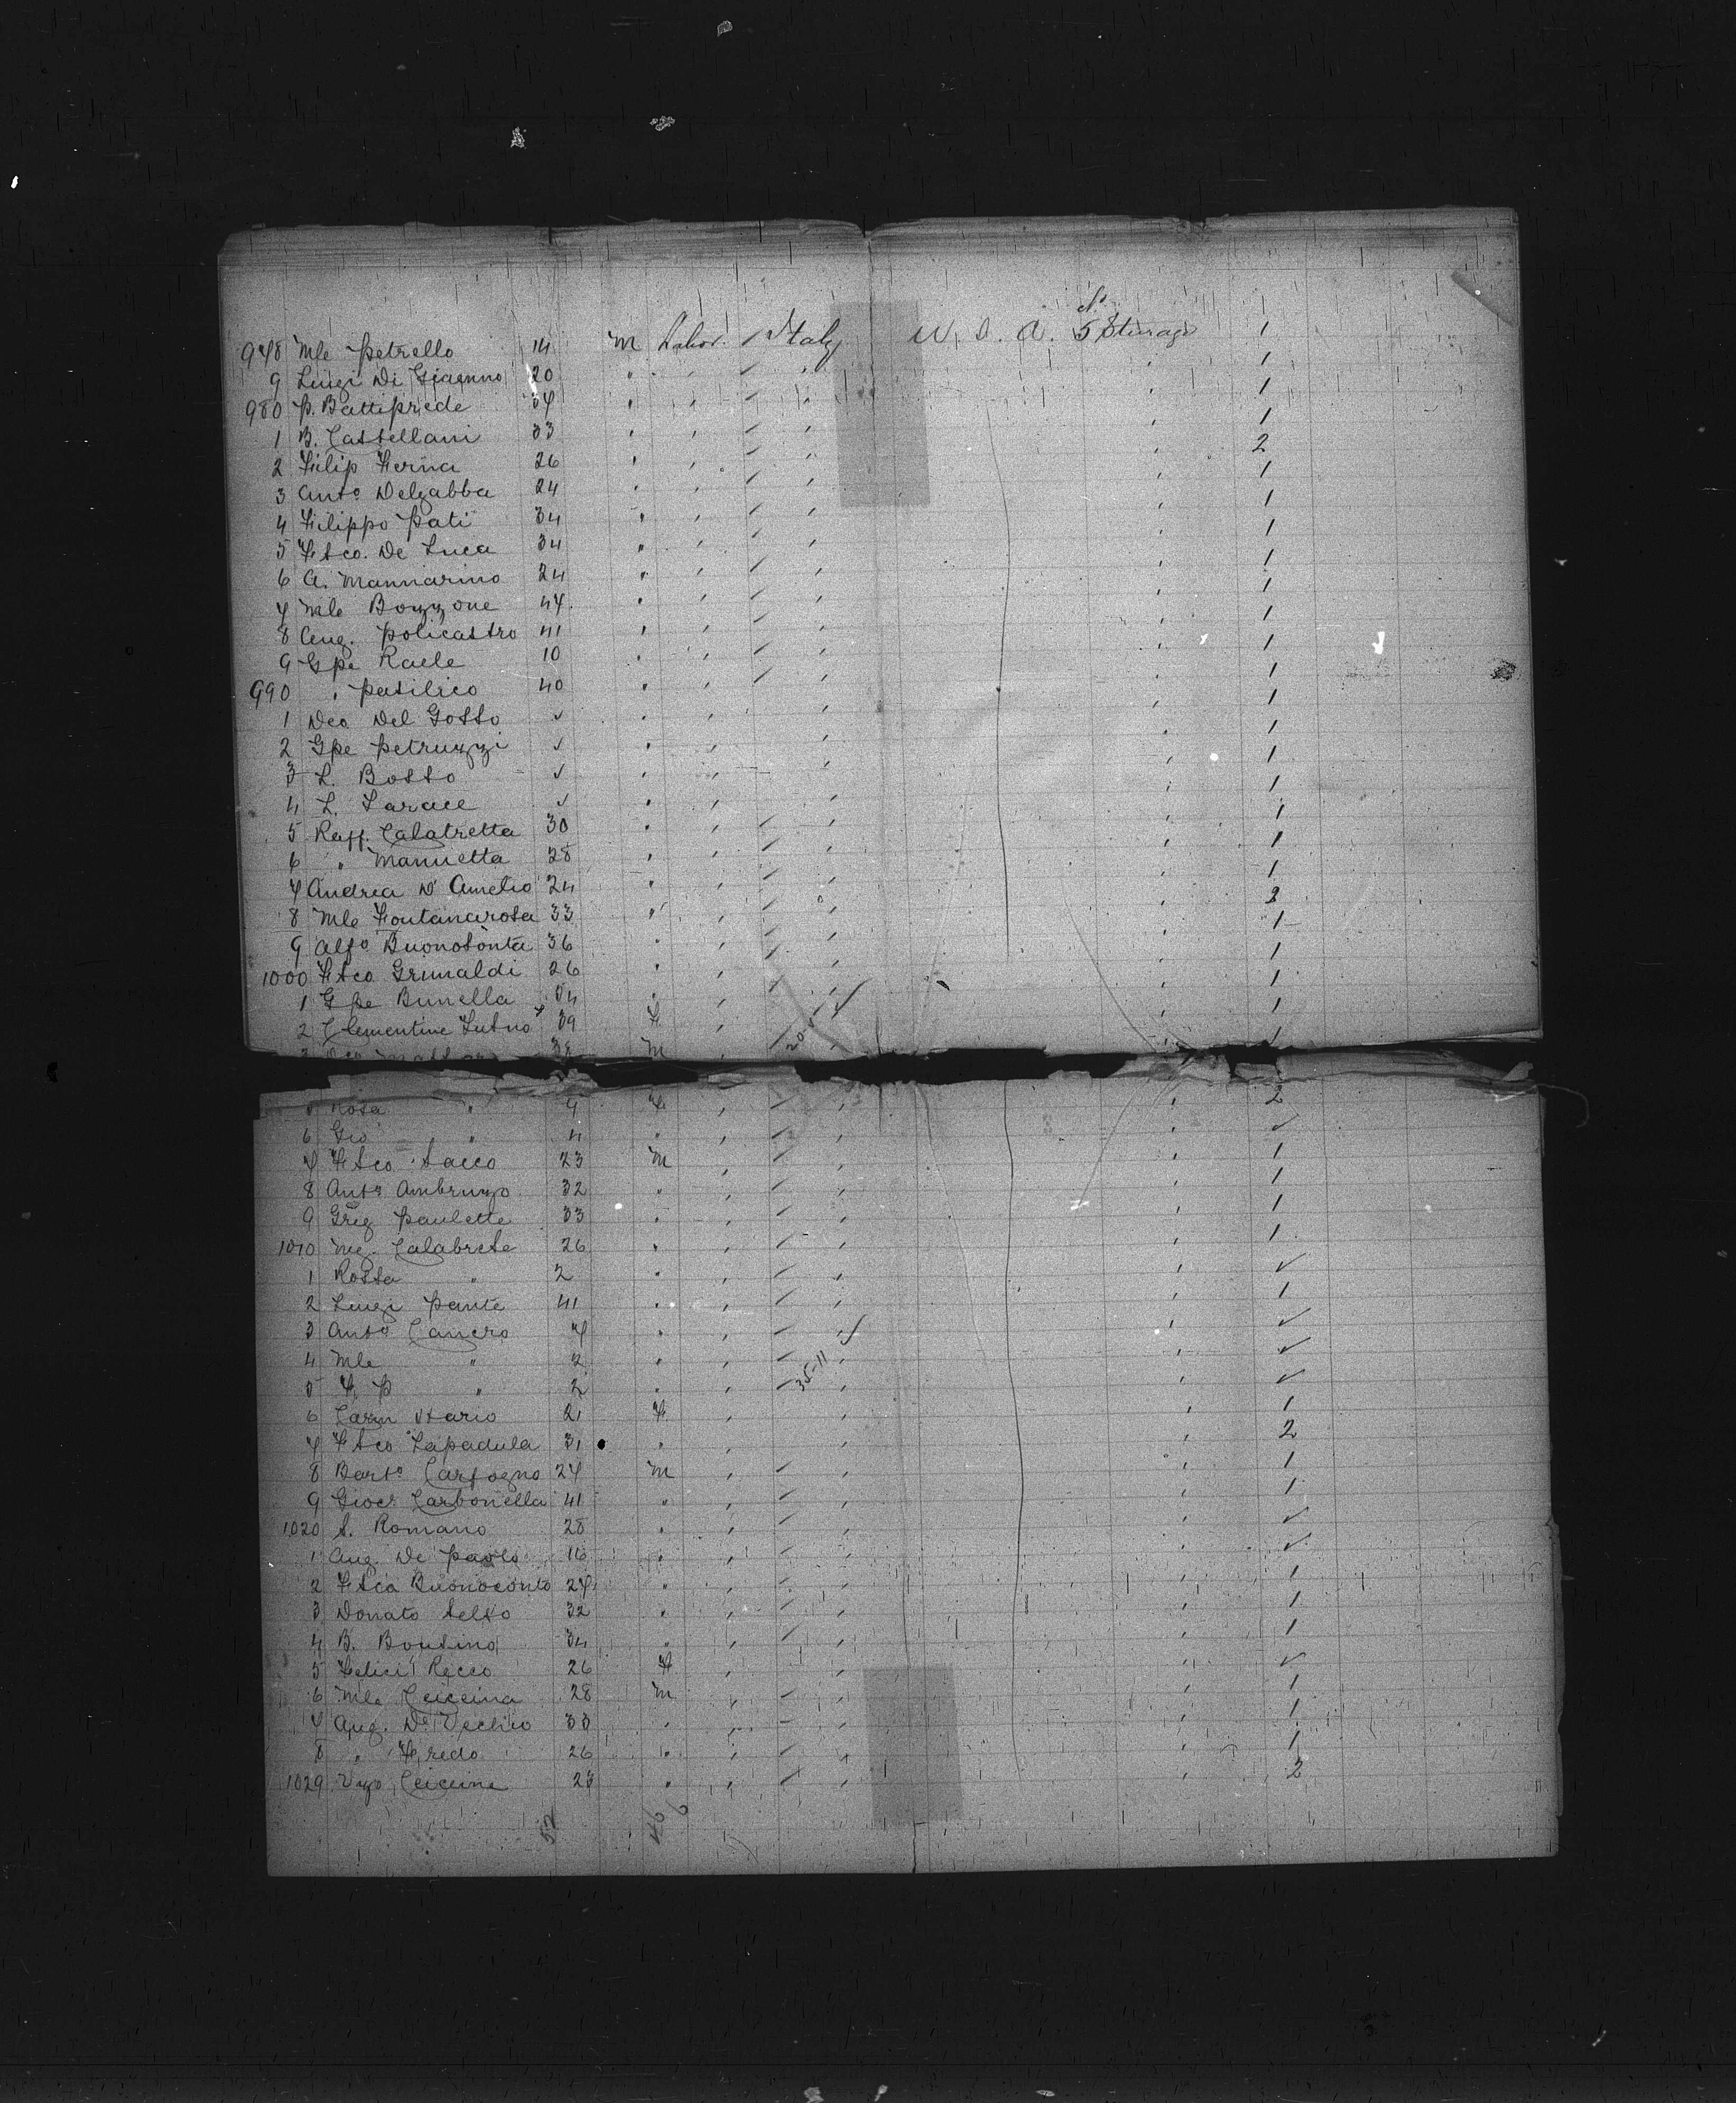 978 Mle Petrello 14 m Labor. / Italy U. S. A. Sturage 1
9 Luigi Di Giaenno 20 " " / " " 1
980 P. Battiprede 34 " " / " " 1
1 B. Castellani 33 " " / " " 1
2 Filip Ferna 26 " " / " " 2
3 Anto Delgabba 24 " " / " " 1
4 Filippo Pati 34 " " / " " 1
5 Fsco. De Luca 34 " " / " " 1
6 A. Mannarino 24 " " / " " 1
7 Mle Bozzone 47 " " / " " 1
8 Aug. Policastro 41 " " / " " 1
9 Gpe Raele 10 " " / " " 1
990 " Pasilico 40 " " / " " 1
1 Deo Del Gosso ✓ " " " " 1
2 Gpe Petruzzi ✓ " " " " 1
3 L. Bosso ✓ " " " " 1
4 L. Sarace ✓ " " " " 1
5 Raff. Calatretta 30 " " / " " 1
6 " Mannetta 28 " " / " " 1
7 Andrea D'Amelio 24 " " / " " 1
8 Mle Fontanarosa 33 " " / " " 2
9 Alfo Buonosonta 36 " " / " " 1
1000 Fsco Grimaldi 26 " " / " " 1
1 Gpe Bunella 34 " " / " " 1
2 Clementine 39 F " / " " 1
38 m 20 " 1
Rosa " 9 F " / " " 2
6 Gio " 4 " " / " " ✓
7 Fsco Sacco 23 m " / " " 1
8 Anto Ambruzo 32 " " / " " 1
9 Greg Paulette 33 " " / " " 1
1010 Mg. Calabrese 26 " " / " " 1
1 Rossa " 2 " " / " " ✓
2 Luigi Pante 41 " " / " " 1
3 Anto Cancro 7 " " / " " ✓
4 Mle " 2 " " / " " ✓
5 F. P " 2 " " / 35-11 " " ✓
6 Carm Stario 21 F " " " 1
7 Fsco Lapadula 31 " " " " 2
8 Barto Carfogno 27 m " / " " 1
9 Giocr Carbonella 41 " " / " " 1
1020 S. Romano 28 " " / " " ✓
1 Aug. De Paolo 16 " " / " " ✓
2 Fsco Buonoconto 27 " " / " " 1
3 Donato Selso 32 " " / " " 1
4 B. Bousino 34 " " / " " 1
5 Felici Recco 26 F " " " ✓
6 Mle Ceiceina 28 m " / " " 1
7 Aug. De Vechio 33 " " / " " 1
8 " Fredo 26 " " / " " 1
1029 Vzo Ceiceine 23 " " / " " 2
52 46 6